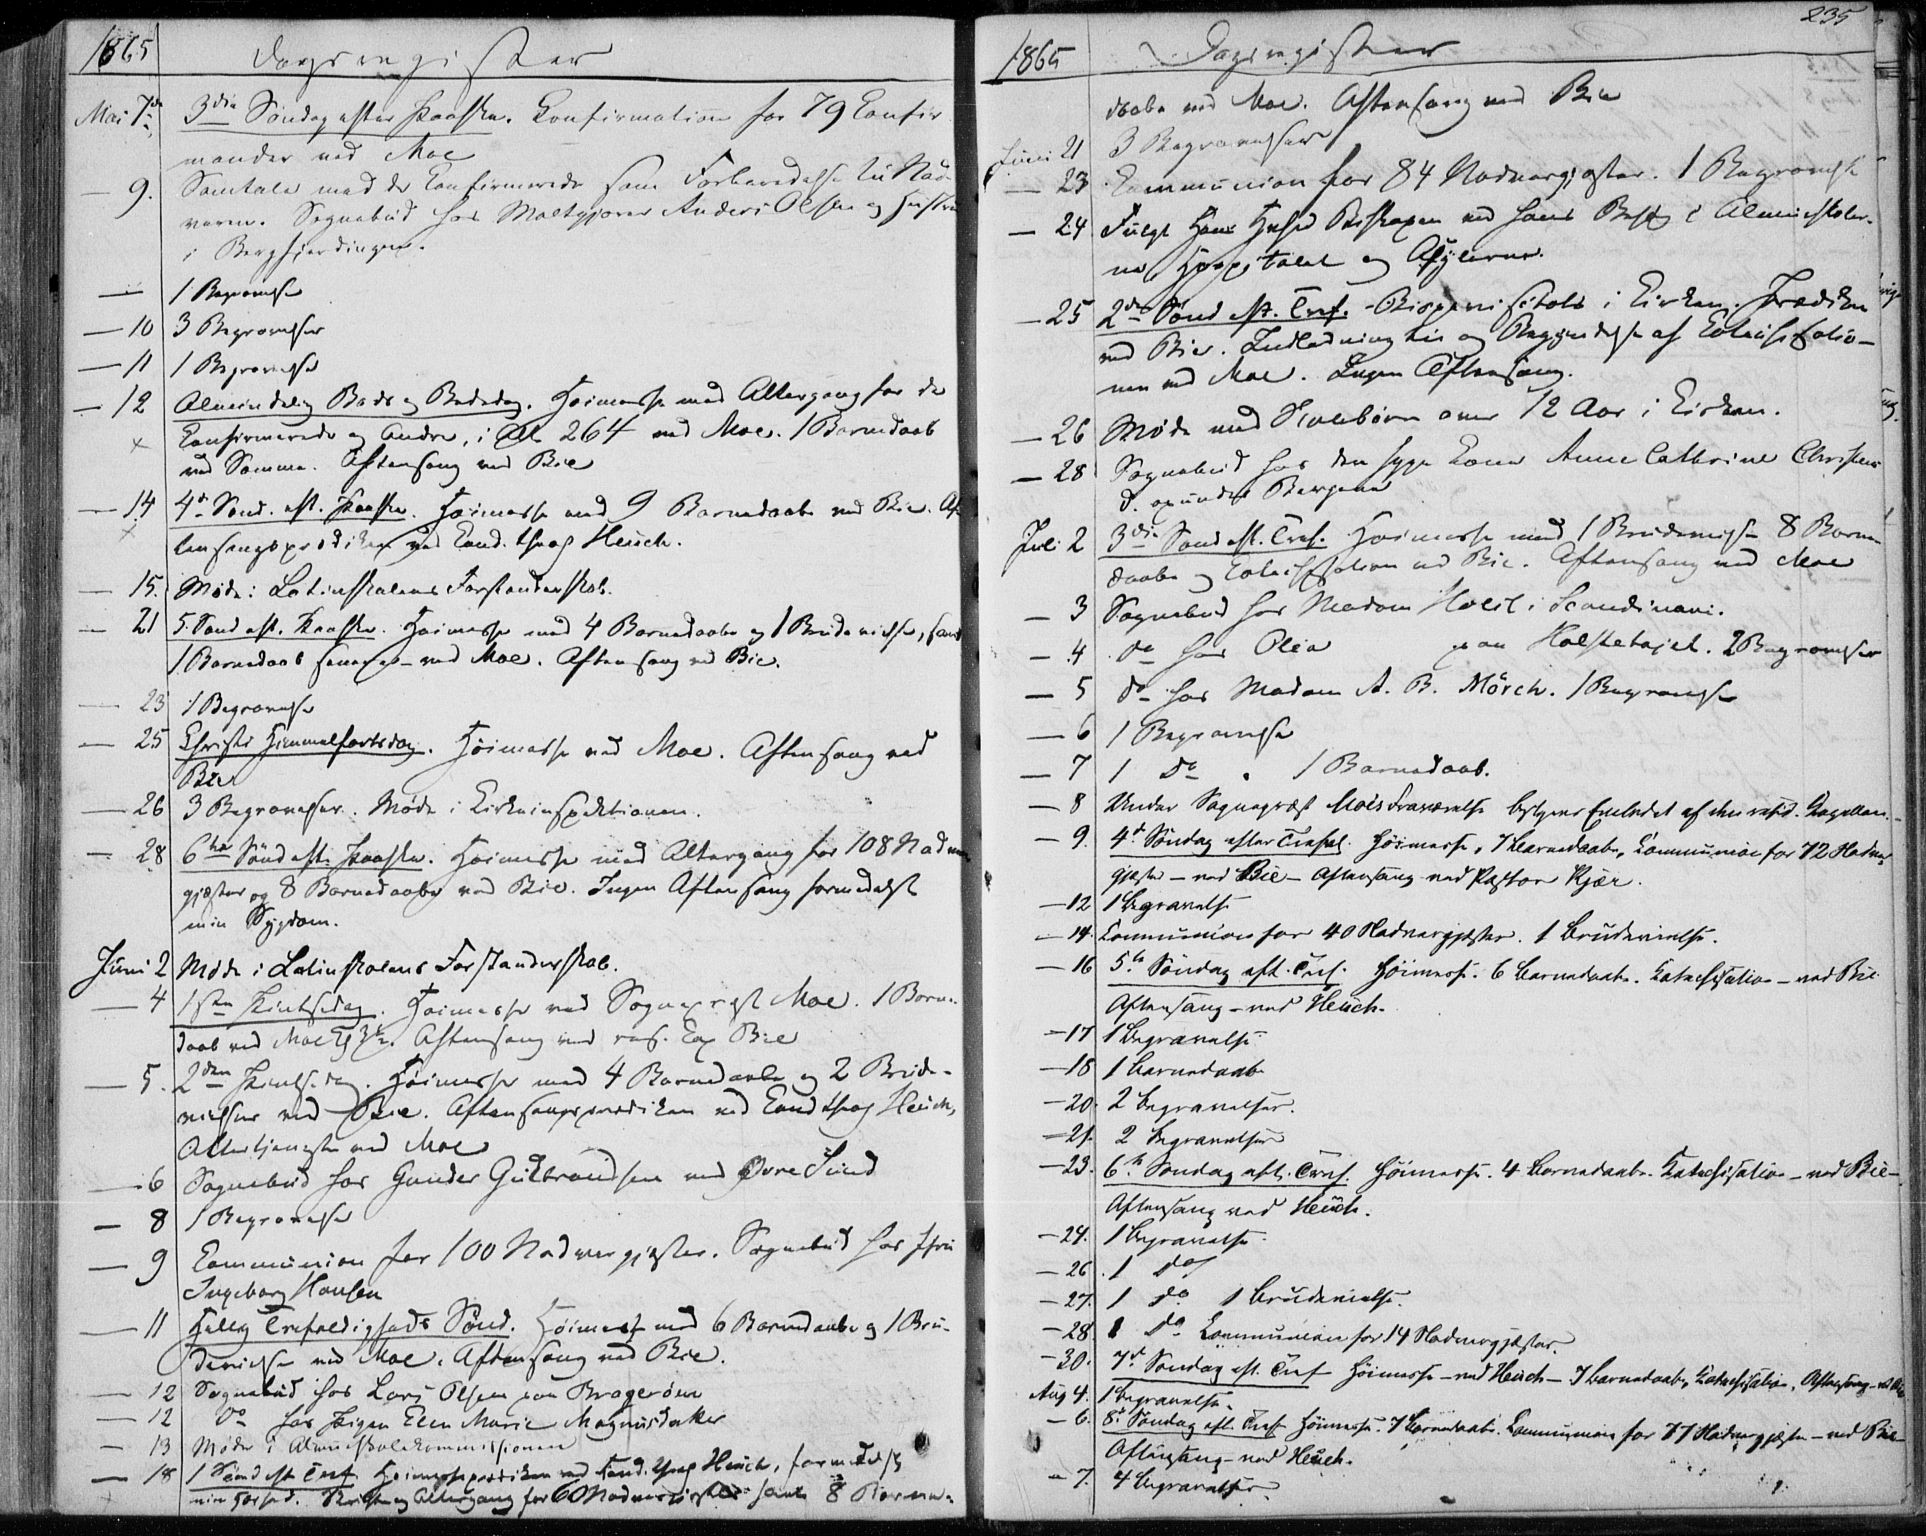 1865 Dagsregister
Mai 7de 3die Søndag efter Paaske. Confirmation for 79 Confir-
mander ved Moe
— 9. Samtale med de Confirmerede som Forberedelse til Nad-
veren. Sognebud hos Anders Olsen og Hustru
i Bergfjerdingen.
— 1 Begravelse
— 10 3 Begravelser
— 11 1 Begravelse
— 12 Almindelig Bods og Bededag. Høimesse med Altergang for de
Confirmerede og Andre, i Alt 264 ved Moe. 1 Barnedaab
ved Samme. Aftensang ved Bie
— 14 4de Sønd. eft. Paaske. Høimesse med 9 Barnedaabe ved Bie. Af-
tensangsprædiken ved Cand. theol Heuch.
— 15. Møde i Latinskolens Forstanderskab.
— 21 5 Sønd eft. Paaske. Høimesse med 4 Barnedaabe og 1 Brudevielse, samt
1 Barnedaab ved Moe. Aftensang ved Bie.
— 23 1 Begravelse
— 25 Christi Himmelfartsdag. Høimesse ved Moe. Aftensang ved
Bie
— 26 3 Begravelser. Møde i Kirkeinspektionen.
— 28 6te Sønd eft. Paaske. Høimesse med Altergang for 108 Nadver-
gjæster og 8 Barnedaabe ved Bie. Ingen Aftensang formedelst
min Sygdom.
Juni 2 Møde i Latinskolens Forstanderskab.
— 4 1ste Pintsedag. Høimesse ved Sognepræst Moe. 1 Barne-
daab ved Moe. Aftensang ved res. Cap Bie
— 5. 2den Pintsedag. Høimesse med 4 Barnedaabe og 2 Brude-
vielser ved Bie. Aftensangsprædiken ved Cand theol Heuch,
Altertjeneste ved Moe
— 6 Sognebud hos Gunder Gulbrandsen ved Øvre Sund
— 8 1 Begravelse
— 9 Communion for 100 Nadvergjæster. Sognebud hos
Ingeborg Hansen
— 11 Hellig Trefoldigheds Sønd. Høimesse med 6 Barnedaabe og 1 Bru-
devielse ved Moe. Aftensang ved Bie.
— 12 Sognebud hos Lars Olsen paa Bragerøen
— 12 Do hos Pigen Elen Marie Magnusdatter
— 13 Møde i Almueskolekommissionen
— 18 1 Sønd eft Tref. Høimesseprædiken ved Cand. theol Heuch, formedelst
min. Skrifte og Altergang for 60 Nadvergjæster samt 8 Barne-
235
1865 Dagsregister
daabe ved Moe. Aftensang ved Bie
Juni 21 3 Begravelser
— 23 Communion for 84 Nadvergjæster. 1 Begravelse
— 24 Fulgt Hans Biskopen ved hans Besøg i Almueskoler-
ne, Hospitalet og Asylerne.
— 25 2den Sønd eft. Tref. Bispevisitats i Kirken. Prædiken
ved Bie. Indledning til og Begyndelse af Catechisatio-
nen ved Moe. Ingen Aftensang.
— 26 Møde med Skolebørn over 12 Aar i Kirken.
— 28 Sognebud hos den syge Kone Anne Cathrine Christens
D. Bergene
Juli 2 3die Sønd eft. Tref. Høimesse med 1 Brudevielse 8 Barne-
daabe og Catechisation ved Bie. Aftensang ved Moe
— 3 Sognebud hos Madam Holst i Scandinavi.
— 4 do hos Olea paa Holstetøjet. 2 Begravelser
— 5 do hos Madam A. B. Mörch. 1 Begravelse
— 6 1 Begravelse
— 7 1 Do . 1 Barnedaab.
— 8 Under Sognepræst Moes Fraværelse bestyres Embedet af den resid. Capellan.
— 9. 4de Søndag efter Trefol. Høimesse, 7 Barnedaabe, Communion for 72 Nadver-
gjæster — ved Bie — Aftensang ved Pastor Kjær.
— 12 1 Begravelse
— 14. Communion for 40 Nadvergjæster. 1 Brudevielse.
— 16 5te Søndag eft. Tref. Høimesse. 6 Barnedaabe. Katechisation — ved Bie
Aftensang — ved Heuch.
— 17 1 Begravelse
— 18 1 Barnedaab
— 20. 2 Begravelser.
— 21. 2 Begravelser
— 23. 6te Søndag eft. Tref. Høimesse. 4 Barnedaabe. Katechisation — ved Bie —
Aftensang ved Heuch.
— 24. 1 Begravelse
— 26. 1 do
— 27. 1 do 1 Brudevielse.
— 28. 1 Do Communion for 14 Nadvergjæster.
— 30. 7de Søndag eft. Tref Høimesse — ved Heuch — 7 Barnedaabe, Katechisation, Aftensang — ved Bie
Aug 4. 1 Begravelse.
— 6. 8de Søndag eft. Tref Høimesse. 7 Barnedaabe. Communion for 77 Nadvergjæster — ved Bie —
Aftensang — ved Heuch.
— 7. 4 Begravelser.